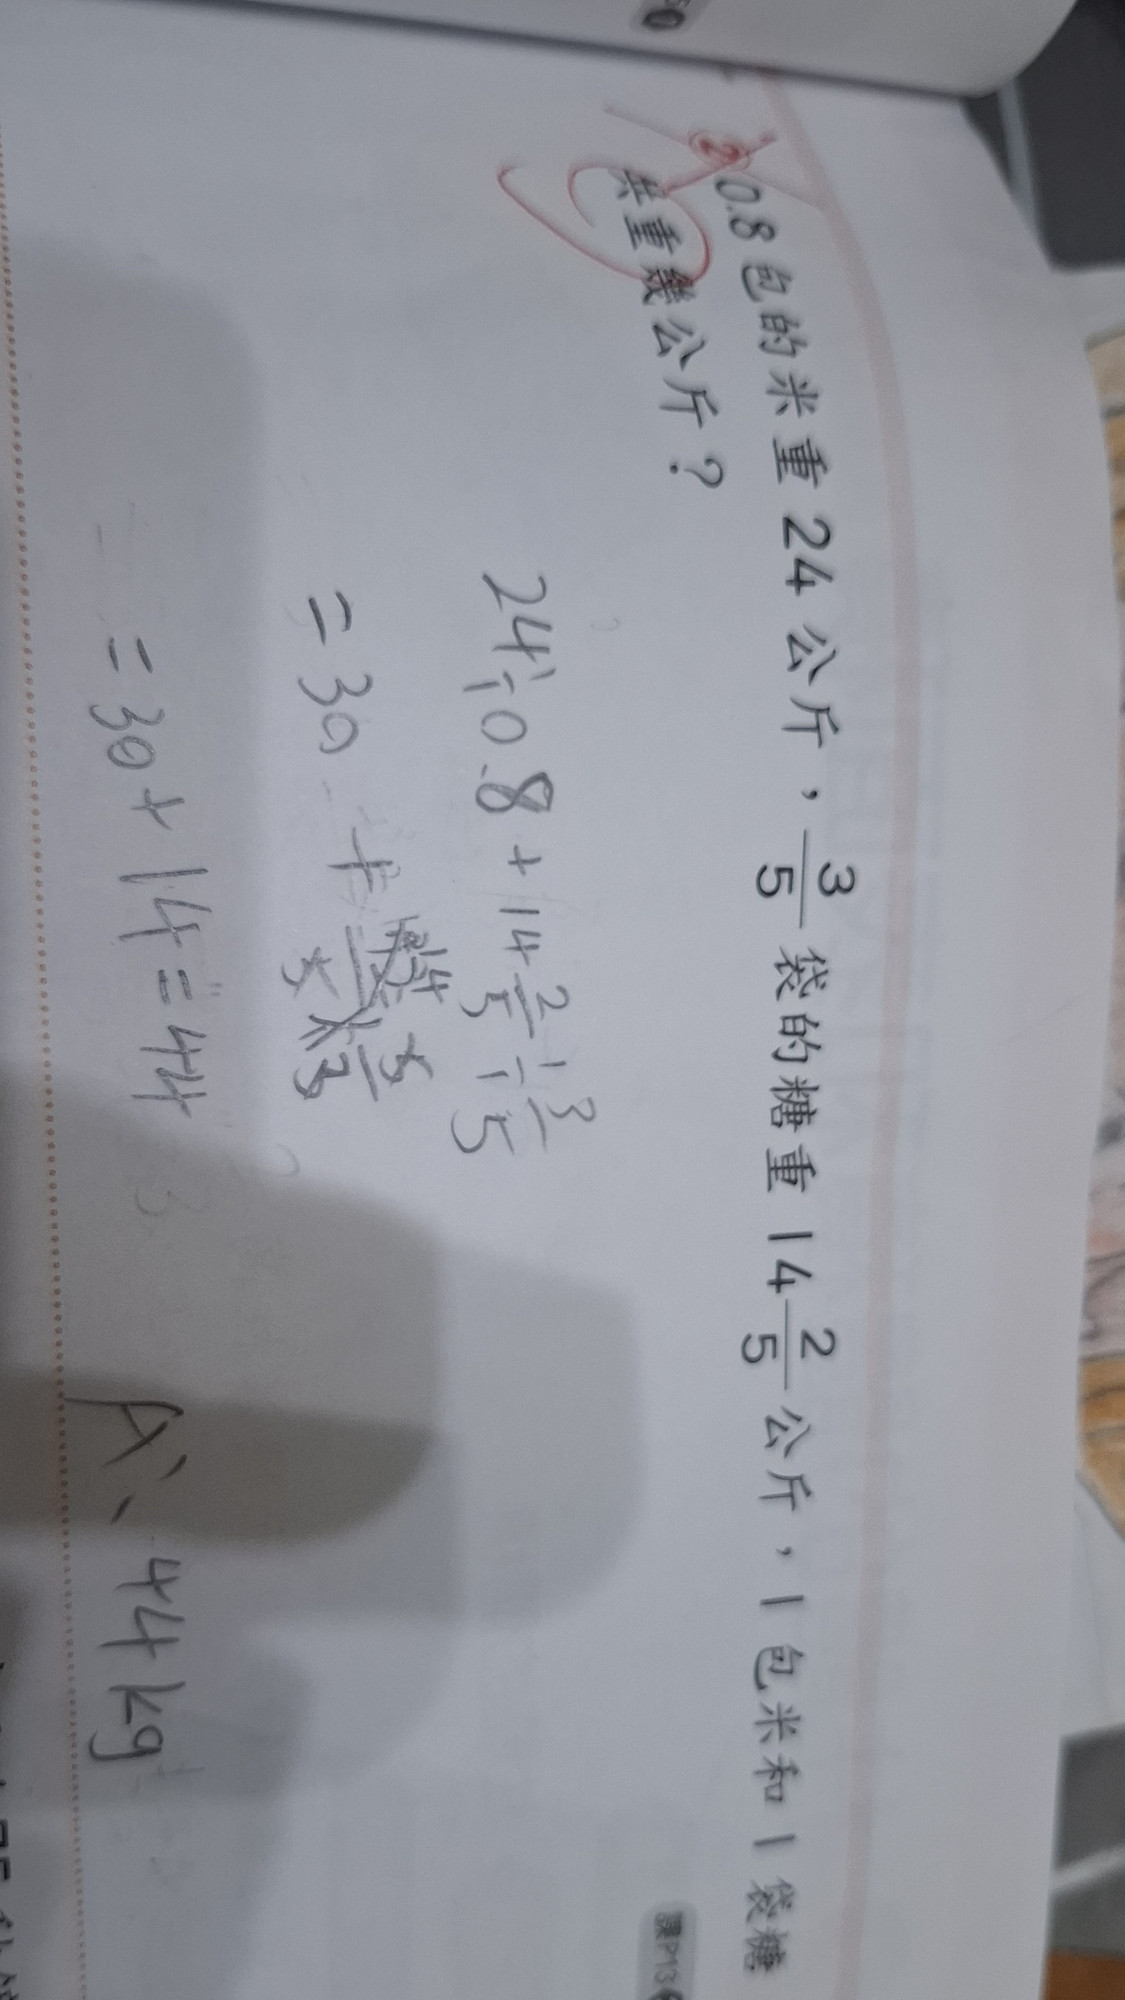 ② 0.8包的米重24公斤，3/5袋的糖重14 2/5公斤，1包米和1袋糖
共重幾公斤？
課P13
24÷0.8+14 2/5÷3/5
=30+
=30+14=44
A、44kg